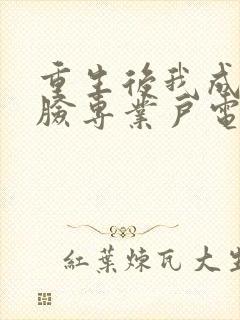 重生後我成
臉專業戶電
紅葉煉瓦大生